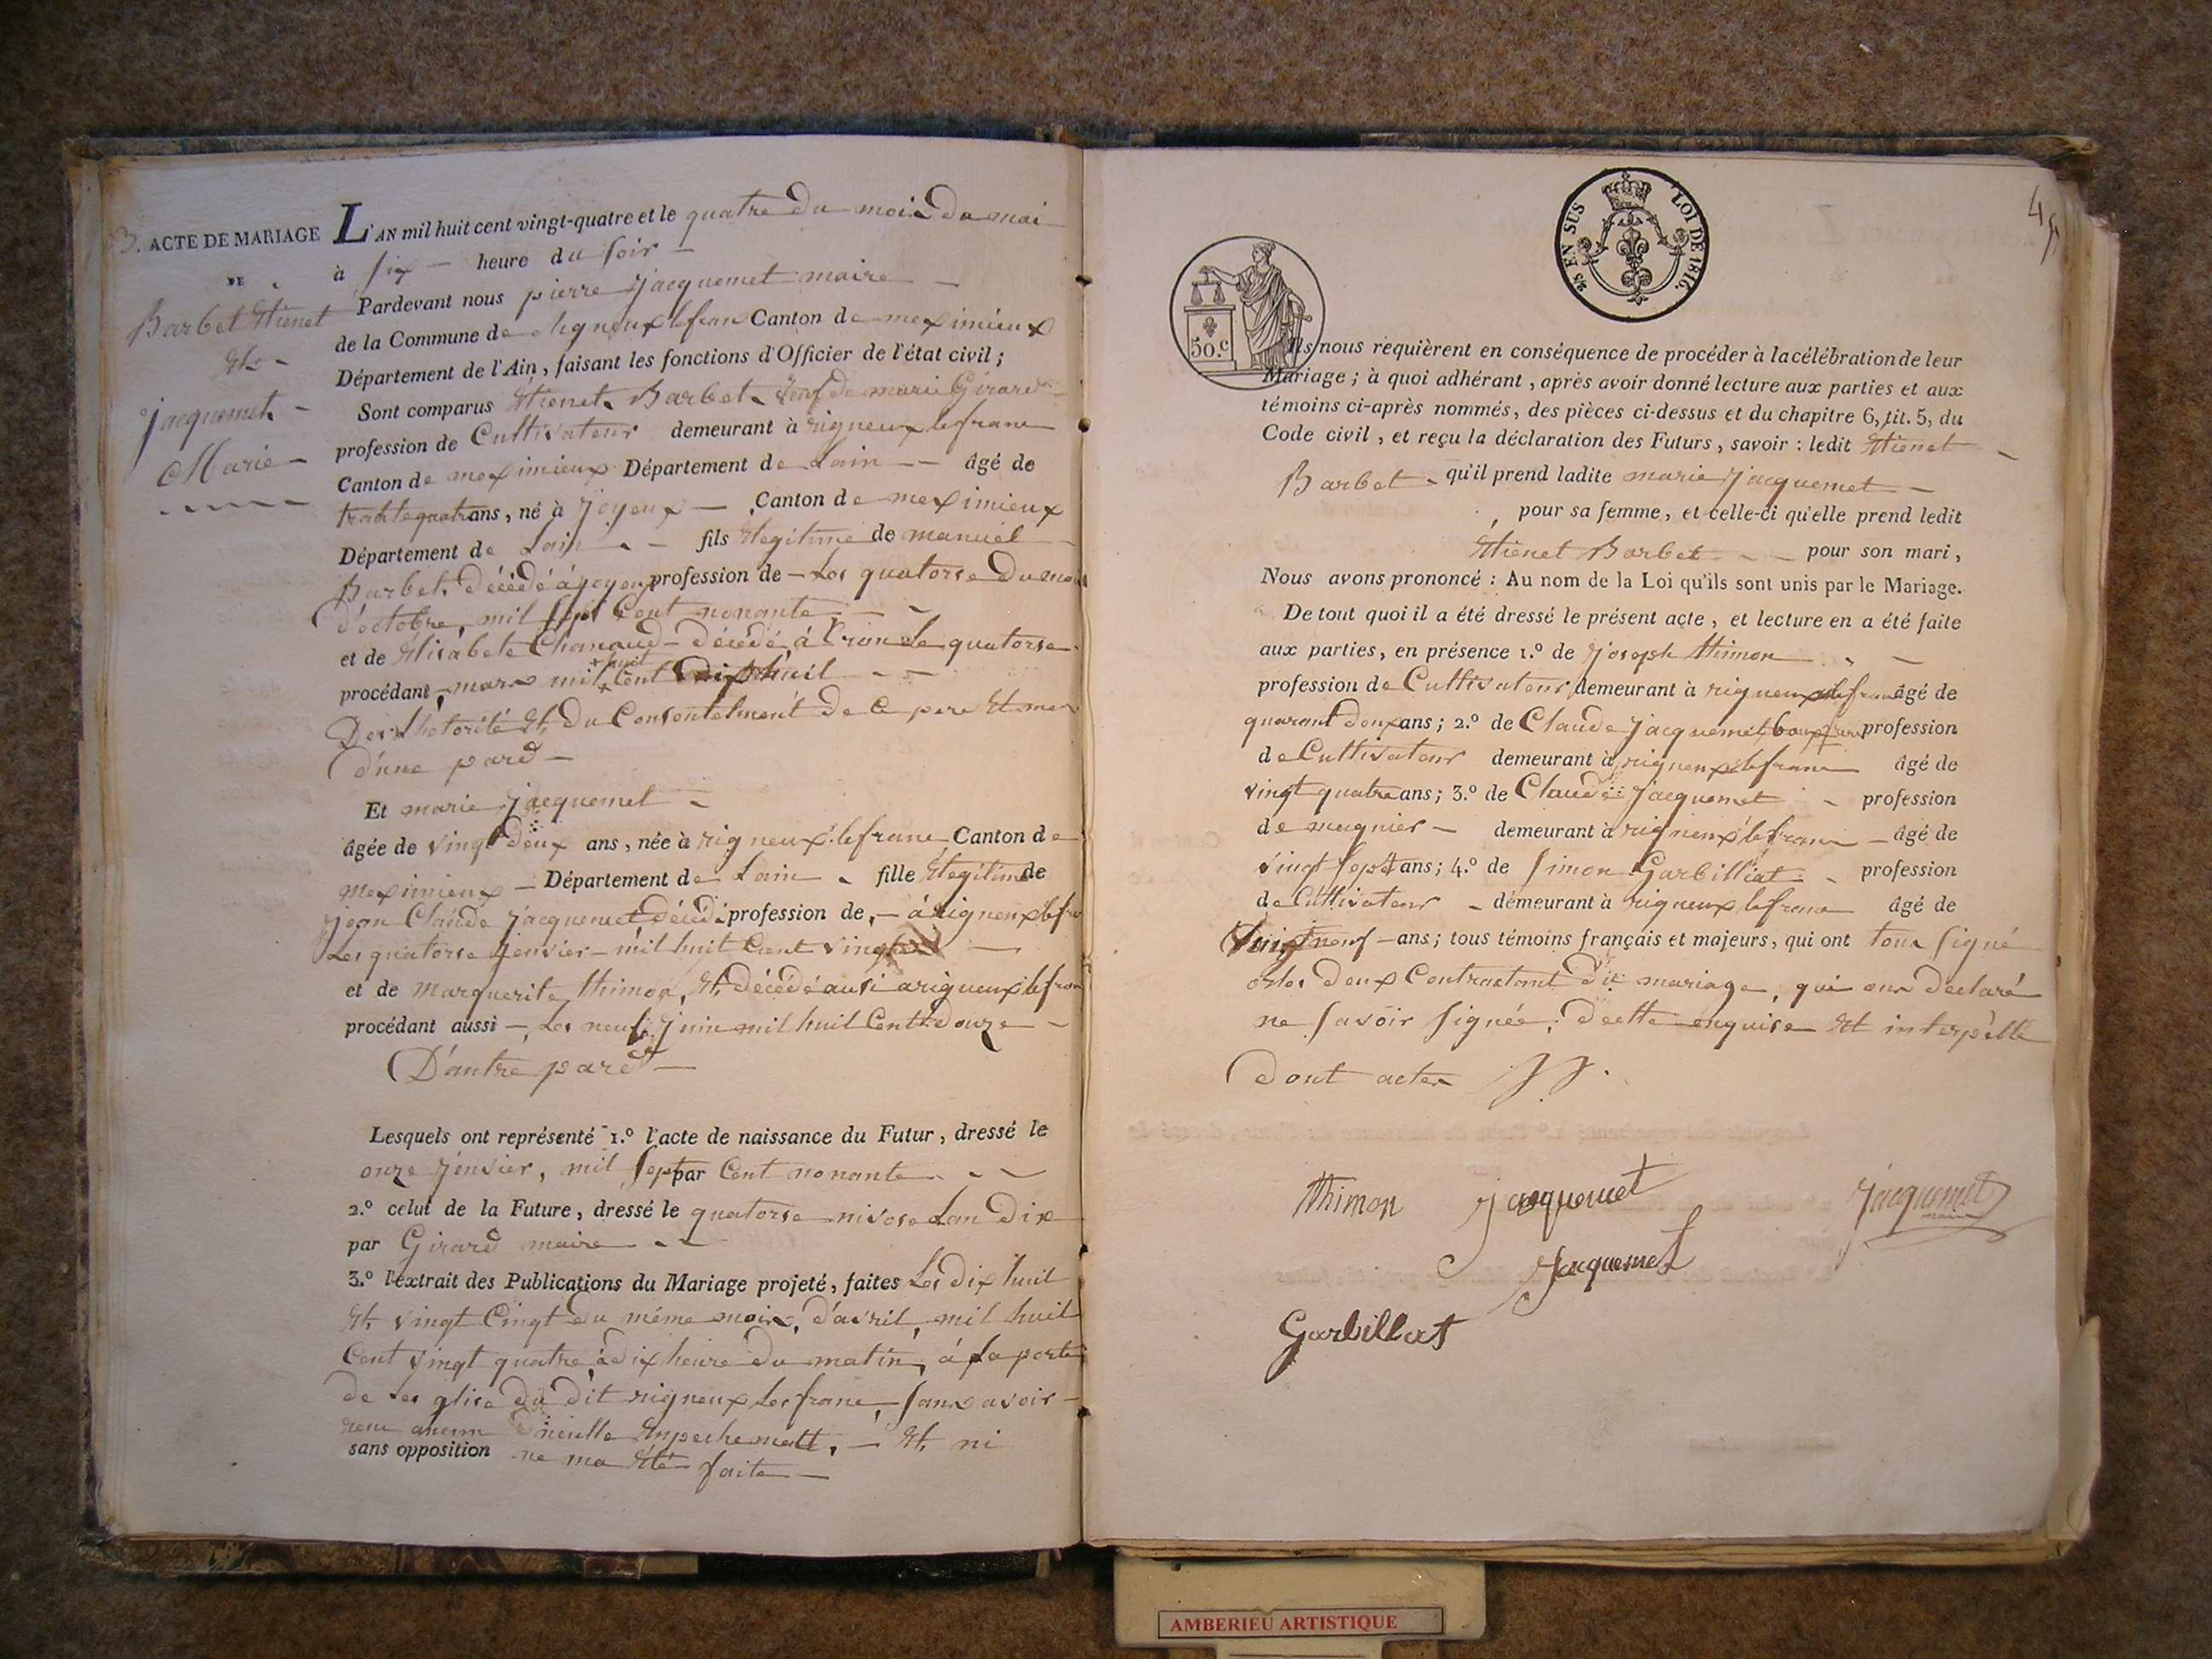 3. ACTE DE MARIAGE
DE
Barbet Etienet
Et
jacquemet
Marie
L'AN mil huit cent vingt-quatre et le quatre du mois de mai
à six heure du soir
Pardevant nous pierre jacquemet maire
de la Commune de rigneux lefranc Canton de meximieux
Département de l'Ain, faisant les fonctions d'Officier de l'état civil;
Sont comparus Etienet Barbet veuf de marie Girard
profession de Cultivateur demeurant à rigneux lefranc
Canton de meximieux Département de Lain âgé de
trante quatr ans, né à joyeux Canton de meximieux
Département de Lain fils Legitime de manuel
Barbet, décédé à joyeux profession de Les quatorse du mois
d'octobre, mil sept Cent nonante
et de Elisabete Chanaud décédé à Cran Le quatorse
procédant mars mil huit Cent dix huit
De Lhotorité Et, du Consentelment de Ce pere Et mer
d'une pard
Et marie jacquemet
âgée de vingt deux ans, née à rigneux lefranc Canton de
meximieux Département de Lain fille Legitime de
jean Claude jacquemet, décédé profession de, à rigneux lefra
Les quatorse jenvier mil huit Cent vingt
et de marguerite thimon, Et, décédé ausi a rigneux lefran
procédant aussi Les neuf juin mil huit Cent douze
D'autre pard
Lesquels ont représenté 1.º l'acte de naissance du Futur, dressé le
onze jenvier, mil sept par Cent nonante
2.º celui de la Future, dressé le quatorse nivose Lan dix
par Girard maire
3.º l'extrait des Publications du Mariage projeté, faites Les dix huit
Et, vingt Cingt du même mois, d'avril, mil huit
Cent vingt quatre, à dix heure du matin, à La porte
de Les glise du dit rigneux Les franc, sans avoir
reçu aucun nieulle Enpechematt, Et, ni
sans opposition ne ma Eté faite
45
2/5 EN SUS LOI DE 1816.
50.c
Ils nous requièrent en conséquence de procéder à la célébration de leur
Mariage; à quoi adhérant, après avoir donné lecture aux parties et aux
témoins ci-après nommés, des pièces ci-dessus et du chapitre 6, tit. 5, du
Code civil, et reçu la déclaration des Futurs, savoir: ledit Etienet
Barbet qu'il prend ladite marie jacquemet
pour sa femme, et celle-ci qu'elle prend ledit
Etienet Barbet pour son mari,
Nous avons prononcé: Au nom de la Loi qu'ils sont unis par le Mariage.
De tout quoi il a été dressé le présent acte, et lecture en a été faite
aux parties, en présence 1.º de joseph thimon
profession de Cultivateur demeurant à rigneux lefranc âgé de
quarant deux ans; 2.º de Claude jacquemet, profession
de Cultivateur demeurant à rigneux lefranc âgé de
vingt quatre ans; 3.º de Claude jacquemet profession
de mugnier demeurant à rigneux lefranc âgé de
vingt sept ans; 4.º de simon Garbilliat profession
de Cultivateur demeurant à rigneux lefranc âgé de
vingt neuf ans; tous témoins français et majeurs, qui ont tous signé
deux Contractant du mariage, qui ons declaré
ne savoir signée, de enquise Et interpellé
dont acte
thimon jacquemet jacquemet
maire
Jacquemet
Garbillat
AMBERIEU ARTISTIQUE